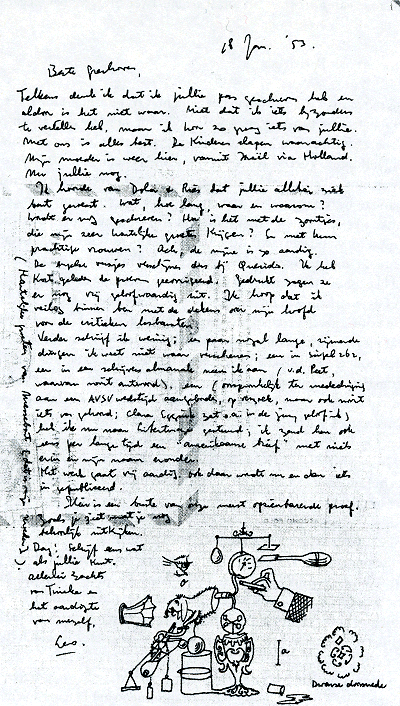 18 Jan. '53.
Beste Greshoven,
Telkens denk ik dat ik jullie pas geschreven heb en
aldoor is het niet waar. Niet dat ik iets bijzonders
te vertellen heb, maar ik hoor zo graag iets van jullie.
Met ons is alles best. De kinderen slapen waarachtig.
Mijn moeder is weer hier, vanuit Israël via Holland.
Nu jullie nog.
Ik hoorde van Dola en dat jullie allebei ziek
bent geweest. Wat, hoe lang, waar en waarom?
Wordt er nog geschreven? Hoe is het met de zoontjes,
die mijn zeer hartelijke groeten krijgen? En met hun
prachtige vrouwen? Ach, de mijne is zo aardig.
De versjes verschijnen dus bij Querido. Ik heb
geleden de proeven gecorrigeerd. Gedrukt zagen ze
er nog vrij geloofwaardig uit. Ik hoop dat ik
veilig binnen ben met de dekens over mijn hoofd
voor de critieken losbarsten.
Verder schrijf ik weinig; een paar nogal lange, rijmende
dingen ik weet niet waar verschenen; een in Singel 262,
een in een schrijvers almanak neem ik aan (v.d. Peet,
waarvan nooit antwoord), een (oorspronkelijk ter mededinging
aan een AVSV wedstrijd aangeboden, op verzoek, maar ook nooit
iets van gehoord; Clara Eggink zat o.a. in de jury geloof ik)
heb ik nu maar gestuurd; ik zend hen ook
eens per lange tijd een "amerikaanse brief" met niets
erin en mijn naam eronder.
Het werk gaat vrij aardig, ook daar wordt nu en dan iets
in gepubliceerd.
Hier is een beetje van onze meest opzienbarende proef.
Zoals je ziet moet je nog
behoorlijk uitkijken.
Dag! Schrijf eens wat
als jullie kunt.
allerlei zachts
van Tineke en
het aardigste
van mezelf.
Leo.
(Hartelijke groeten van
a
Dwarse doorsnede